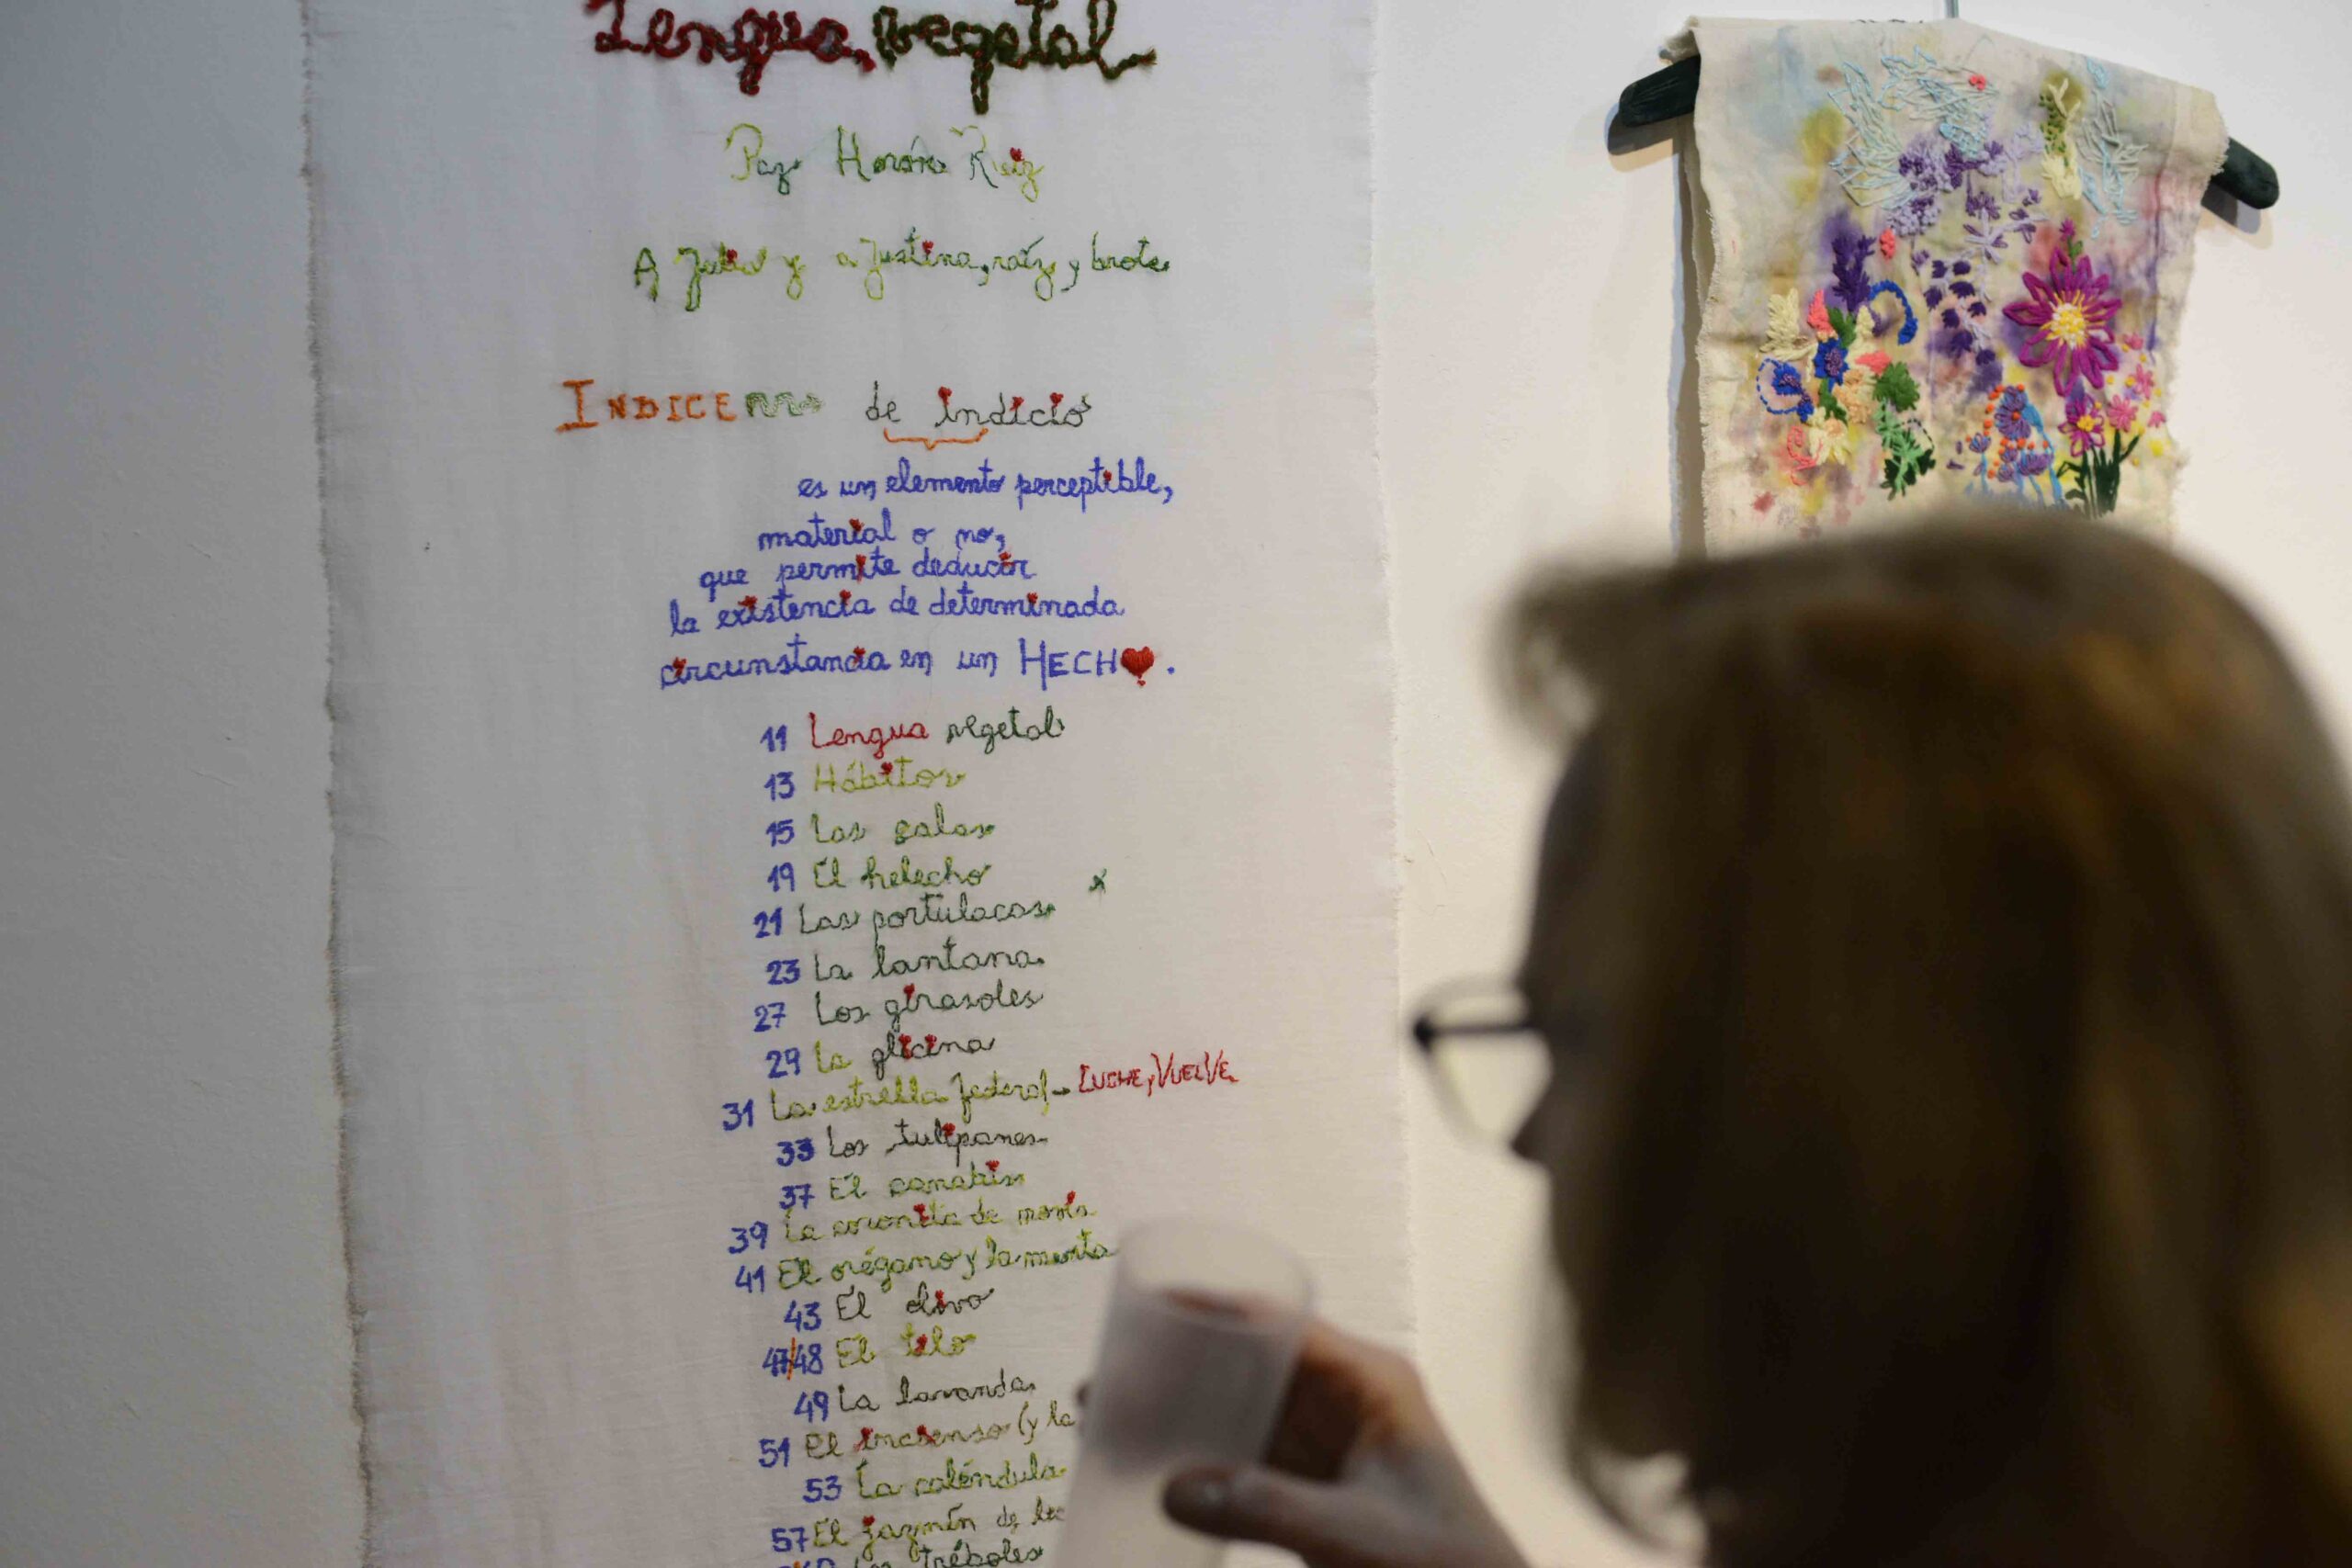 Lengua vegetal
Paz
A Julia y a Justina, raíz y brote
INDICE de indicio
es un elemento perceptible,
material o no,
que permite deducir
la existencia de determinada
circunstancia en un HECH♥.
11 Lengua vegetal
13 Hábitos
15 Las calas
19 El helecho
21 Las portulacas
23 La lantana
27 Los girasoles
29 La glicina
31 La estrella federal - LUCHE, VUELVE
33 Los tulipanes
37 El canabis
39 La coronita de novia
41 El orégano y la menta
43 El olivo
47/48 El tilo
49 La lavanda
51 El incienso (y la
53 La caléndula
57 El jazmín de
Los tréboles